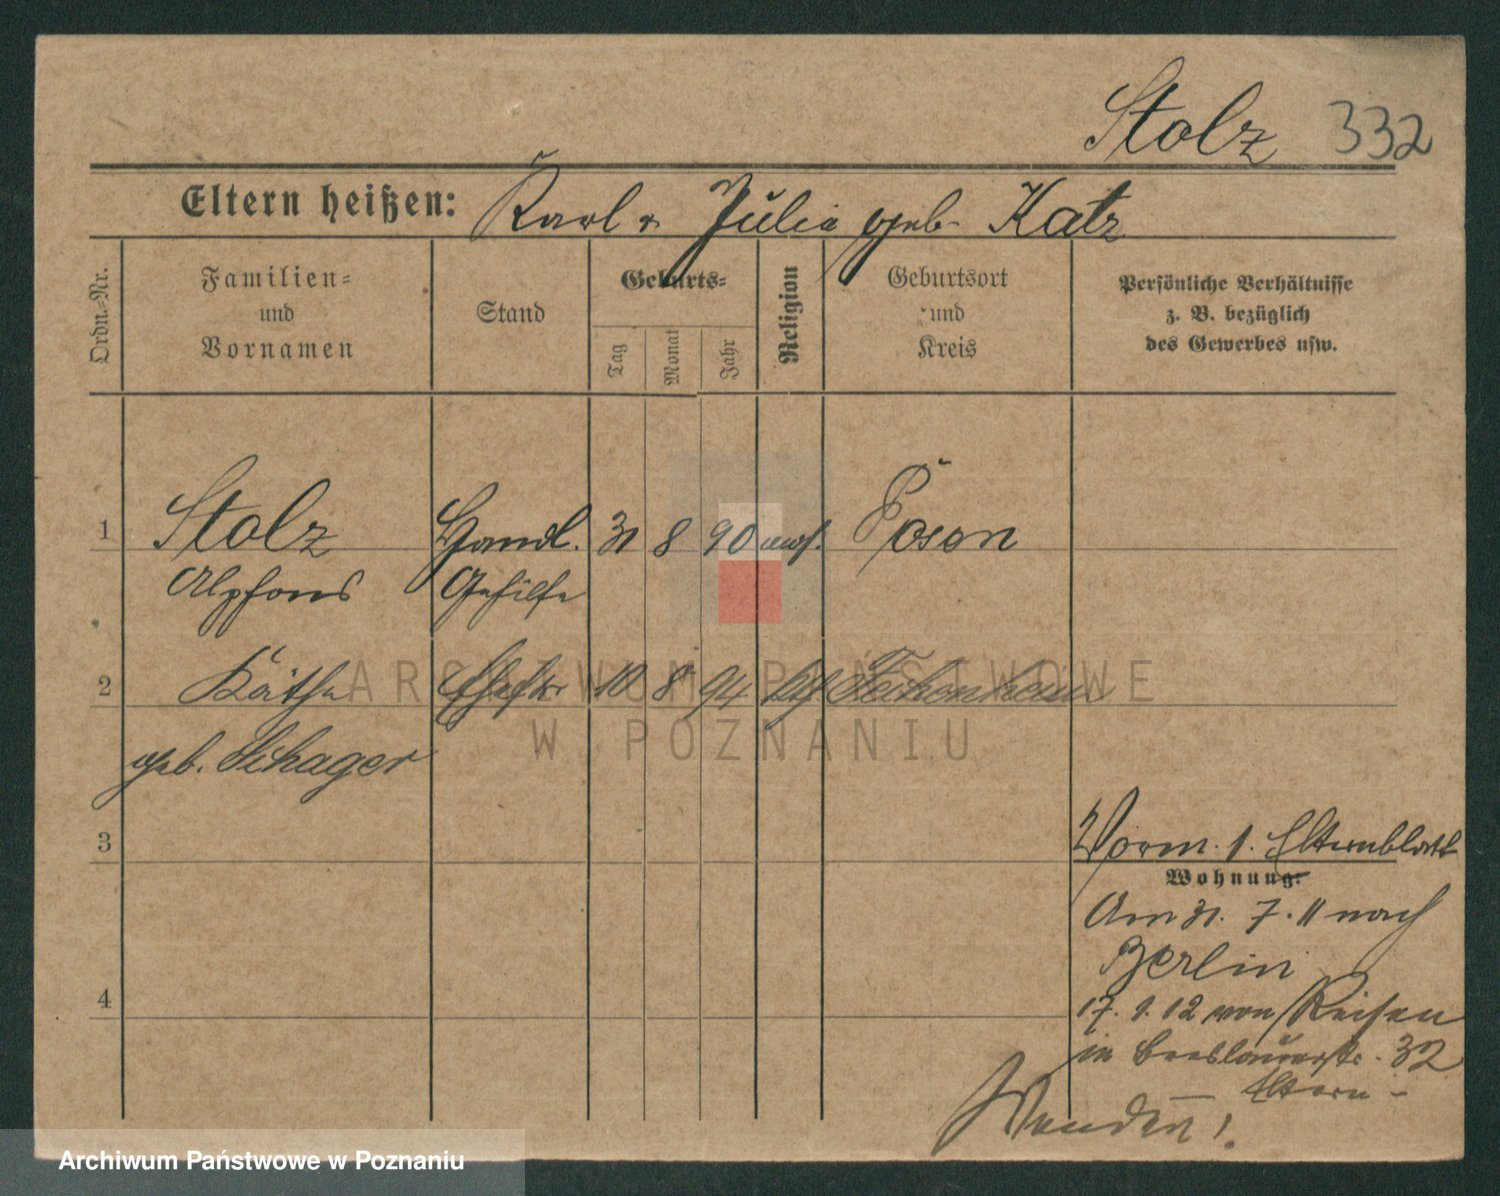 Stolz 332
Eltern heißen: Karl u Julia geb. Katz
Ordn.-Nr.
Familien-
und
Vornamen
Stand
Geburts-
Tag
Monat
Jahr
Religion
Geburtsort
und
Kreis
Persönliche Verhältnisse
z. B. bezüglich
des Gewerbes usw.
1 Stolz Handl. 31 8 90 mos. Posen
Alpfons Gehilfe
2 Käthe Ehefr 10 8 94 Fechenheim
geb. Schager
3
Vorm. 1. Elternblatt
Wohnung:
Am 31. 7. 11 nach
Berlin
4
17. 1. 12 von Reisen
in Breslauerstr. 32
Eltern -
Wenden!
ARCHIWUM PAŃSTWOWE
W POZNANIU
Archiwum Państwowe w Poznaniu